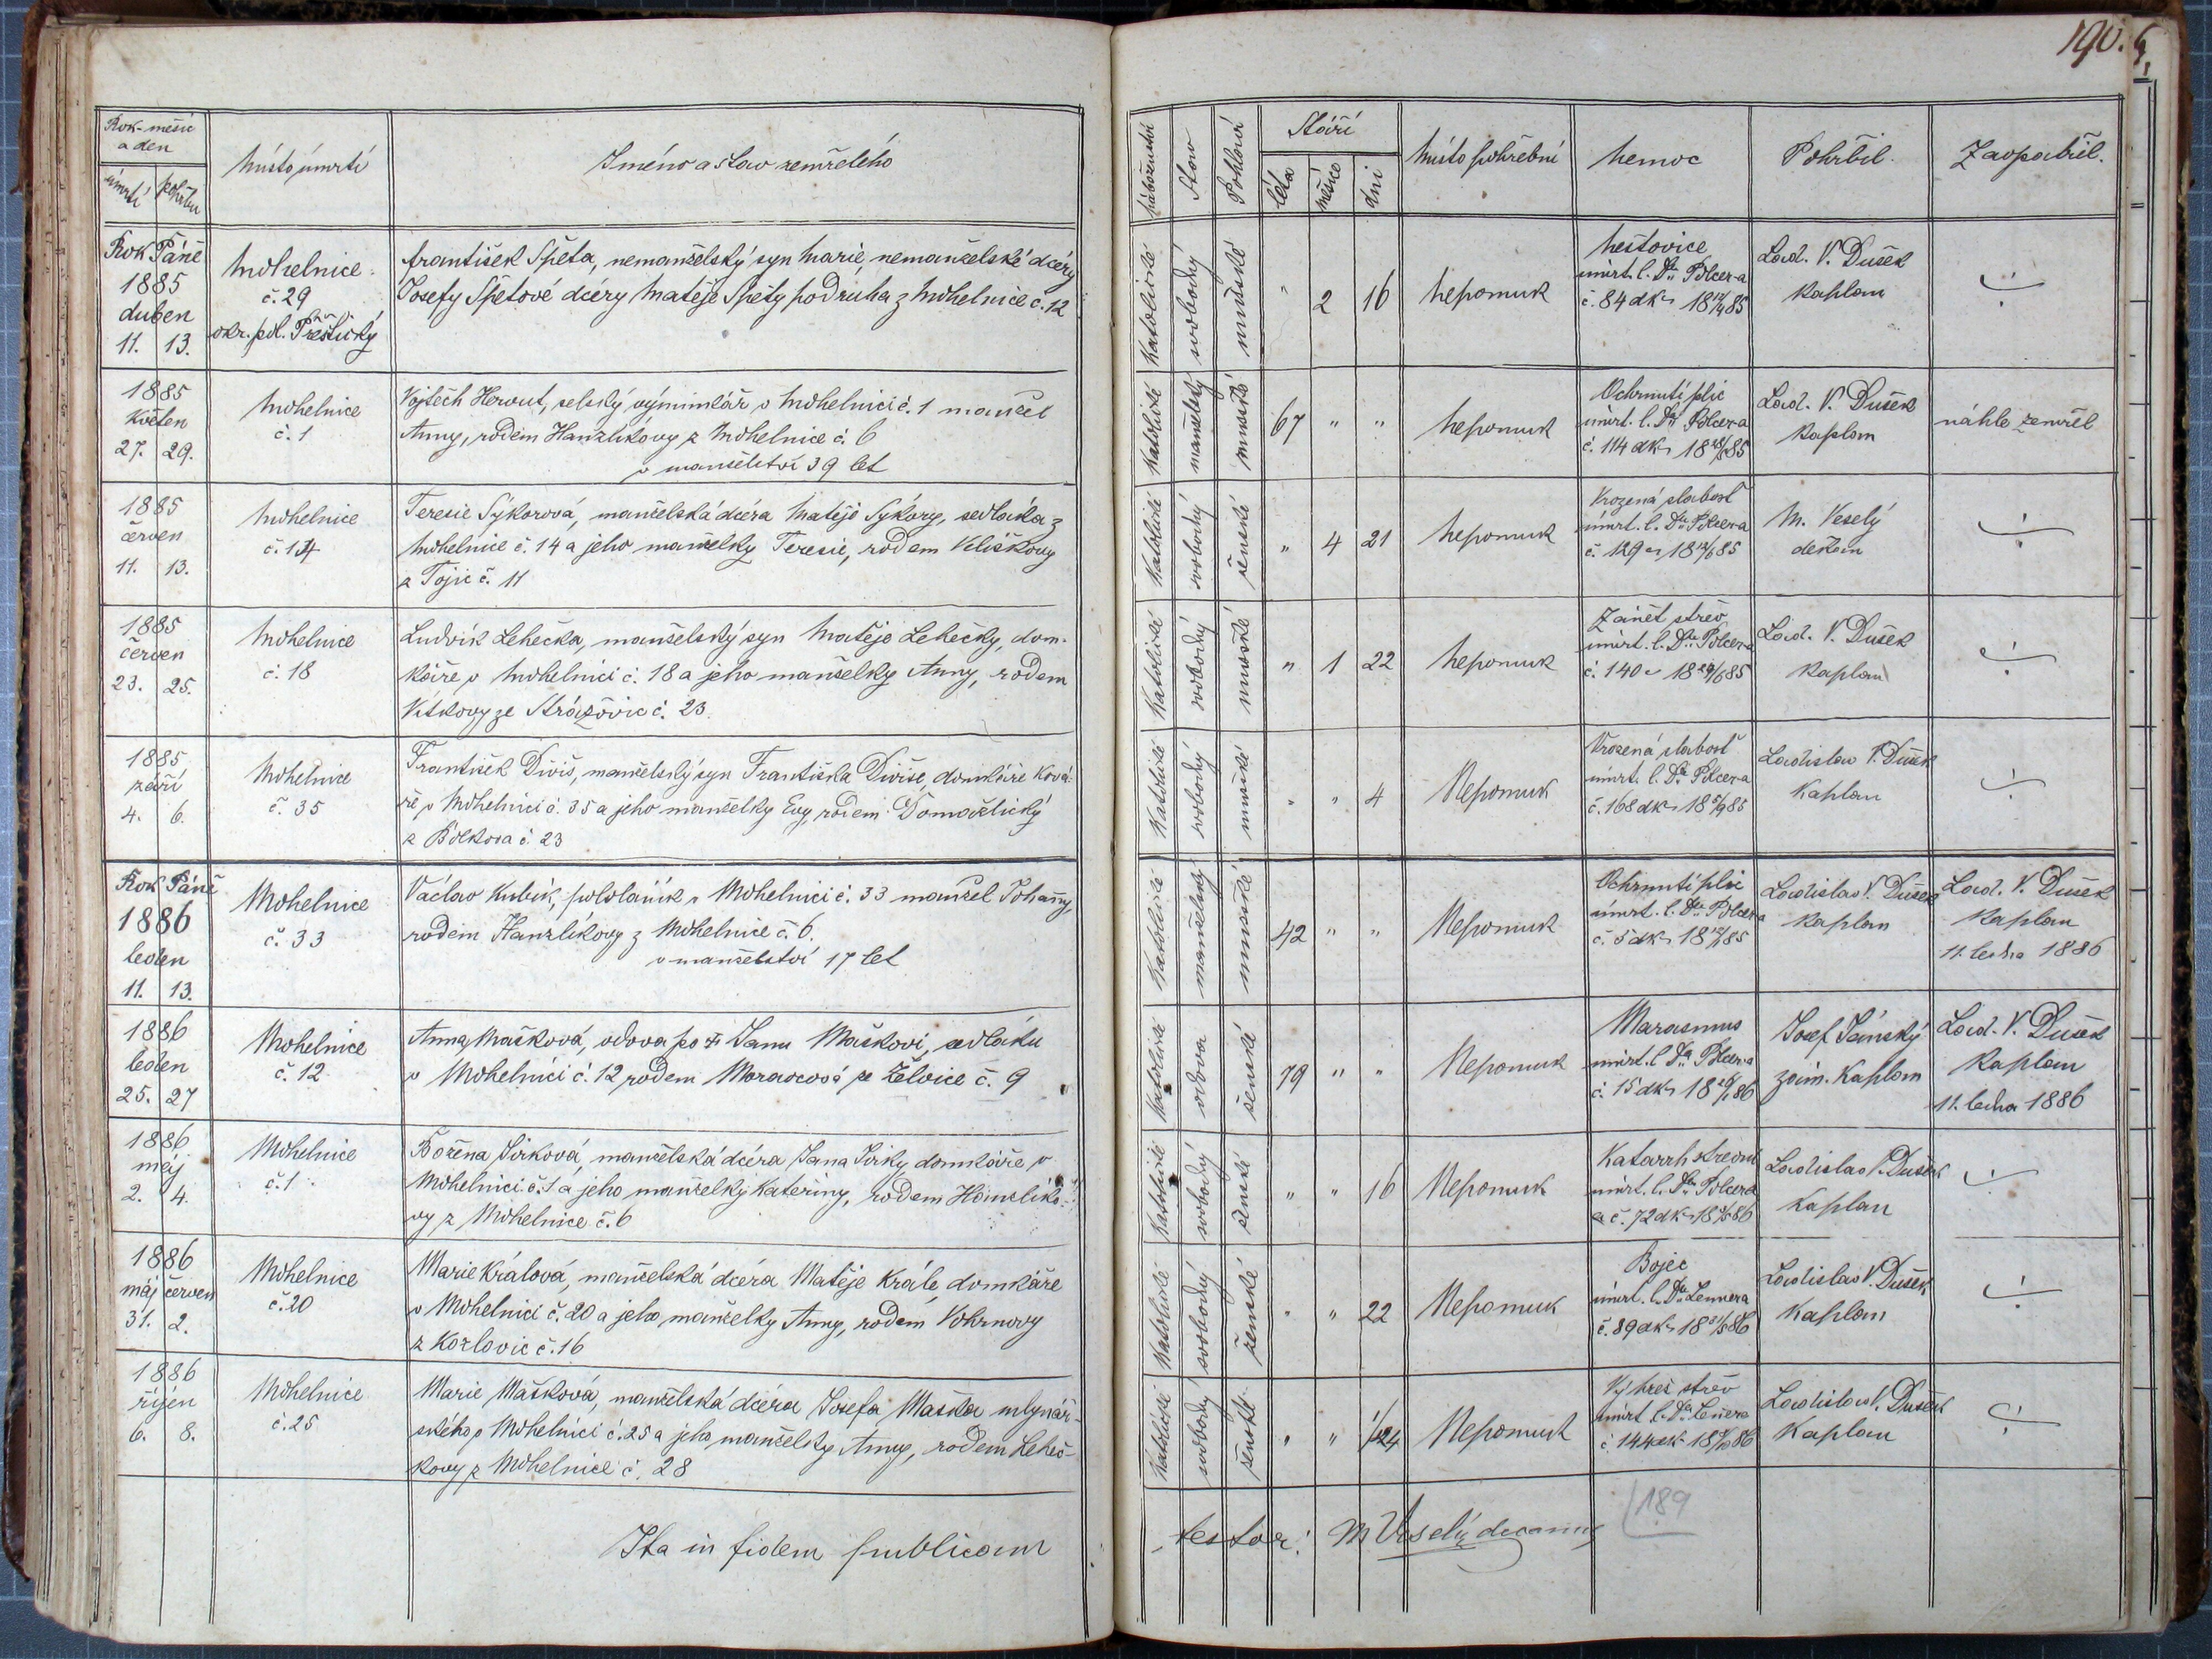 190.
Rok-měsíc
a den
úmrtí pohřbu
Místo úmrtí
Jméno a stav zemřelého
Náboženství
Stav
Pohlaví
Stáří
léta
měsíce
dni
Místo pohřební
Nemoc
Pohřbil.
Zaopatřil.
Rok Páně
1885
duben
11. 13.
Mohelnice
č. 29
okr. pol. Přeštický
František Špeta, nemanželský syn Marie, nemanželské dcéry
Josefy Špetové dcéry Matěje Špety podruha z Mohelnice č. 12
Katolické
svobodný
mužské
" 2 16
Nepomuk
Neštovice
úmrt. l. Dra Polcer-a
č. 84 dkt 18 12/4 85
Lad. V. Dušek
kaplan
÷
1885
Květen
27. 29.
Mohelnice
č. 1
Vojtěch Herout, selský výminkář v Mohelnici č. 1 manžel
Anny, rodem Hanzlíkovy z Mohelnice č. 6
v manželství 39 let
Katolické
manželský
mužské
67 " "
Nepomuk
Ochrnutí plic
úmrt. l. Dra Polcer-a
č. 114 dkt 18 28/5 85
Lad. V. Dušek
Kaplan
náhle zemřel
1885
červen
11. 13.
Mohelnice
č. 14
Teresie Sýkorová, manželská dcéra Matěje Sýkory, sedláka z
Mohelnice č. 14 a jeho manželky Teresie, rodem Veliškovy
z Tojic č. 11
Katolické
svobodný
ženské
" 4 21
Nepomuk
Vrozená slabosť
úmrt. l. Dra Polcer-a
č. 129 18 12/6 85
M. Veselý
děkan
÷
1885
červen
23. 25.
Mohelnice
č. 18
Ludvík Lehečka, manželský syn Matěje Lehečky, dom-
káře v Mohelnici č. 18 a jeho manželky Anny, rodem
Vítkovy ze Strážovic č. 23.
Katolické
svobodný
mužské
" 1 22
Nepomuk
Zánět střev
úmrt. l. Dra Polcer-a
č. 140 18 24/6 85
Lad. V. Dušek
Kaplan
÷
1885
září
4. 6.
Mohelnice
č. 35
František Diviš, manželský syn Františka Diviše, domkáře ková-
ře v Mohelnici č. 35 a jeho manželky Evy, rodem Domažlický
z Bělkova č. 23
Katolické
svobodný
mužské
" " 4
Nepomuk
Vrozená slabosť
úmrt. l. Dra Polcer-a
č. 168 dkt 18 5/9 85
Ladislav V. Dušek
Kaplan
÷
Rok Páně
1886
leden
11. 13.
Mohelnice
č. 33
Václav Kubík, pololáník v Mohelnici č. 33 manžel Johany,
rodem Hanzlíkovy z Mohelnice č. 6.
v manželství 17 let
Katolické
manželský
mužské
42 " "
Nepomuk
Ochrnutí plic
úmrt. l. Dra Polcera
č. 5 dkt 18 12/1 85
Ladislav V. Dušek
Kaplan
Lad. V. Dušek
Kaplan
11. ledna 1886
1886
leden
25. 27
Mohelnice
č. 12
Anna Mašková, vdova po † Janu Maškovi, sedláku
v Mohelnici č. 12 rodem Moravcová ze Želvice č. 9
Katolické
vdova
ženské
79 " "
Nepomuk
Marasmus
úmrt. l Dra Polcer-a
č. 15 dkt 18 26/1 86
Josef Jánský
zám. Kaplan
Lad. V. Dušek
Kaplan
11. ledna 1886
1886
máj
2. 4.
Mohelnice
č. 1
Božena Jírková, manželská dcéra Jana Jirky, domkáře v
Mohelnici č. 1 a jeho manželky Kateřiny, rodem Hanzlíko-
vy z Mohelnice č. 6
Katolické
svobodný
ženské
" " 16
Nepomuk
Katarrh střevní
úmrt. l. Dra Polcera
č. 72 dkt 18 3/5 86
Ladislav V. Dušek
Kaplan
÷
1886
máj červen
31. 2.
Mohelnice
č. 20
Marie Králová, manželská dcéra Matěje Krále, domkáře
v Mohelnici č. 20 a jeho manželky Anny, rodem Vokrnovy
z Kozlovic č. 16
Katolické
svobodný
ženské
" " 22
Nepomuk
Bojec
úmrt. l. Dra Lennera
č. 89 dkt 18 31/5 86
Ladislav V. Dušek
Kaplan
÷
1886
říjen
6. 8.
Mohelnice
č. 25
Marie Mašková, manželská dcéra Josefa Maška mlynář-
ského v Mohelnici č. 25 a jeho manželky Anny, rodem Leheč-
kovy z Mohelnice č. 28
Katolické
svobodný
ženské
" " 1/24
Nepomuk
Výhřez střev
úmrt. l. Dra Lennera
č. 144 dkt 18 7/10 86
Ladislav V. Dušek
Kaplan
÷
Ita in fidem publicam
testor: M Veselý decanus
189